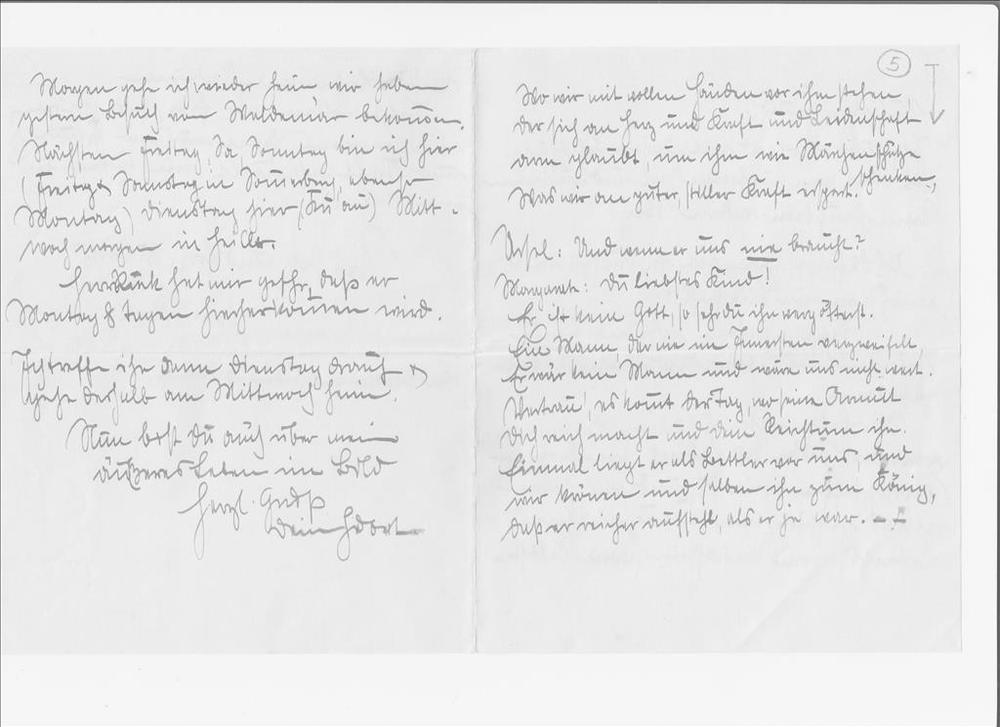 Morgen gehe ich wieder heim wir haben
gestern Besuch von Waldemar bekommen.
Nächsten Freitag, Sa, Sonntag bin ich hier
(Freitag & Samstag in ebenso
Montag) Dienstag hier Mitt-
woch morgen in
Herr hat mir daß er
Montag 8 Tagen hierherkommen wird.
Ich treffe ihn dann Dienstag drauf &
gehe deshalb am Mittwoch heim.
Nun bist du auch über mein
äußeres Leben im Bild
Herzl. Gruß
Dein
5
Wo wir mit vollen Händen vor ihm stehen,
der sich an Herz und Kraft und Leidenschaft
arm glaubt, um ihm wie Märchenschätze
schenken,
Was wir an guter, stiller Kraft erspart.
Ursel: Und wenn er uns nie braucht?
Margarete: Du liebstes Kind!
Er ist kein Gott, so sehr du ihn vergötterst.
Ein Mann, der nie im Innersten verzweifelt,
Er wär kein Mann und wäre uns nicht wert.
Vertrau', es kommt der Tag, wo seine Armut
Dich reich macht und dein Reichtum ihn.
Einmal liegt er als Bettler vor uns, und
wir krönen und salben ihn zum König,
daß er reicher aufsteht, als er je war. –